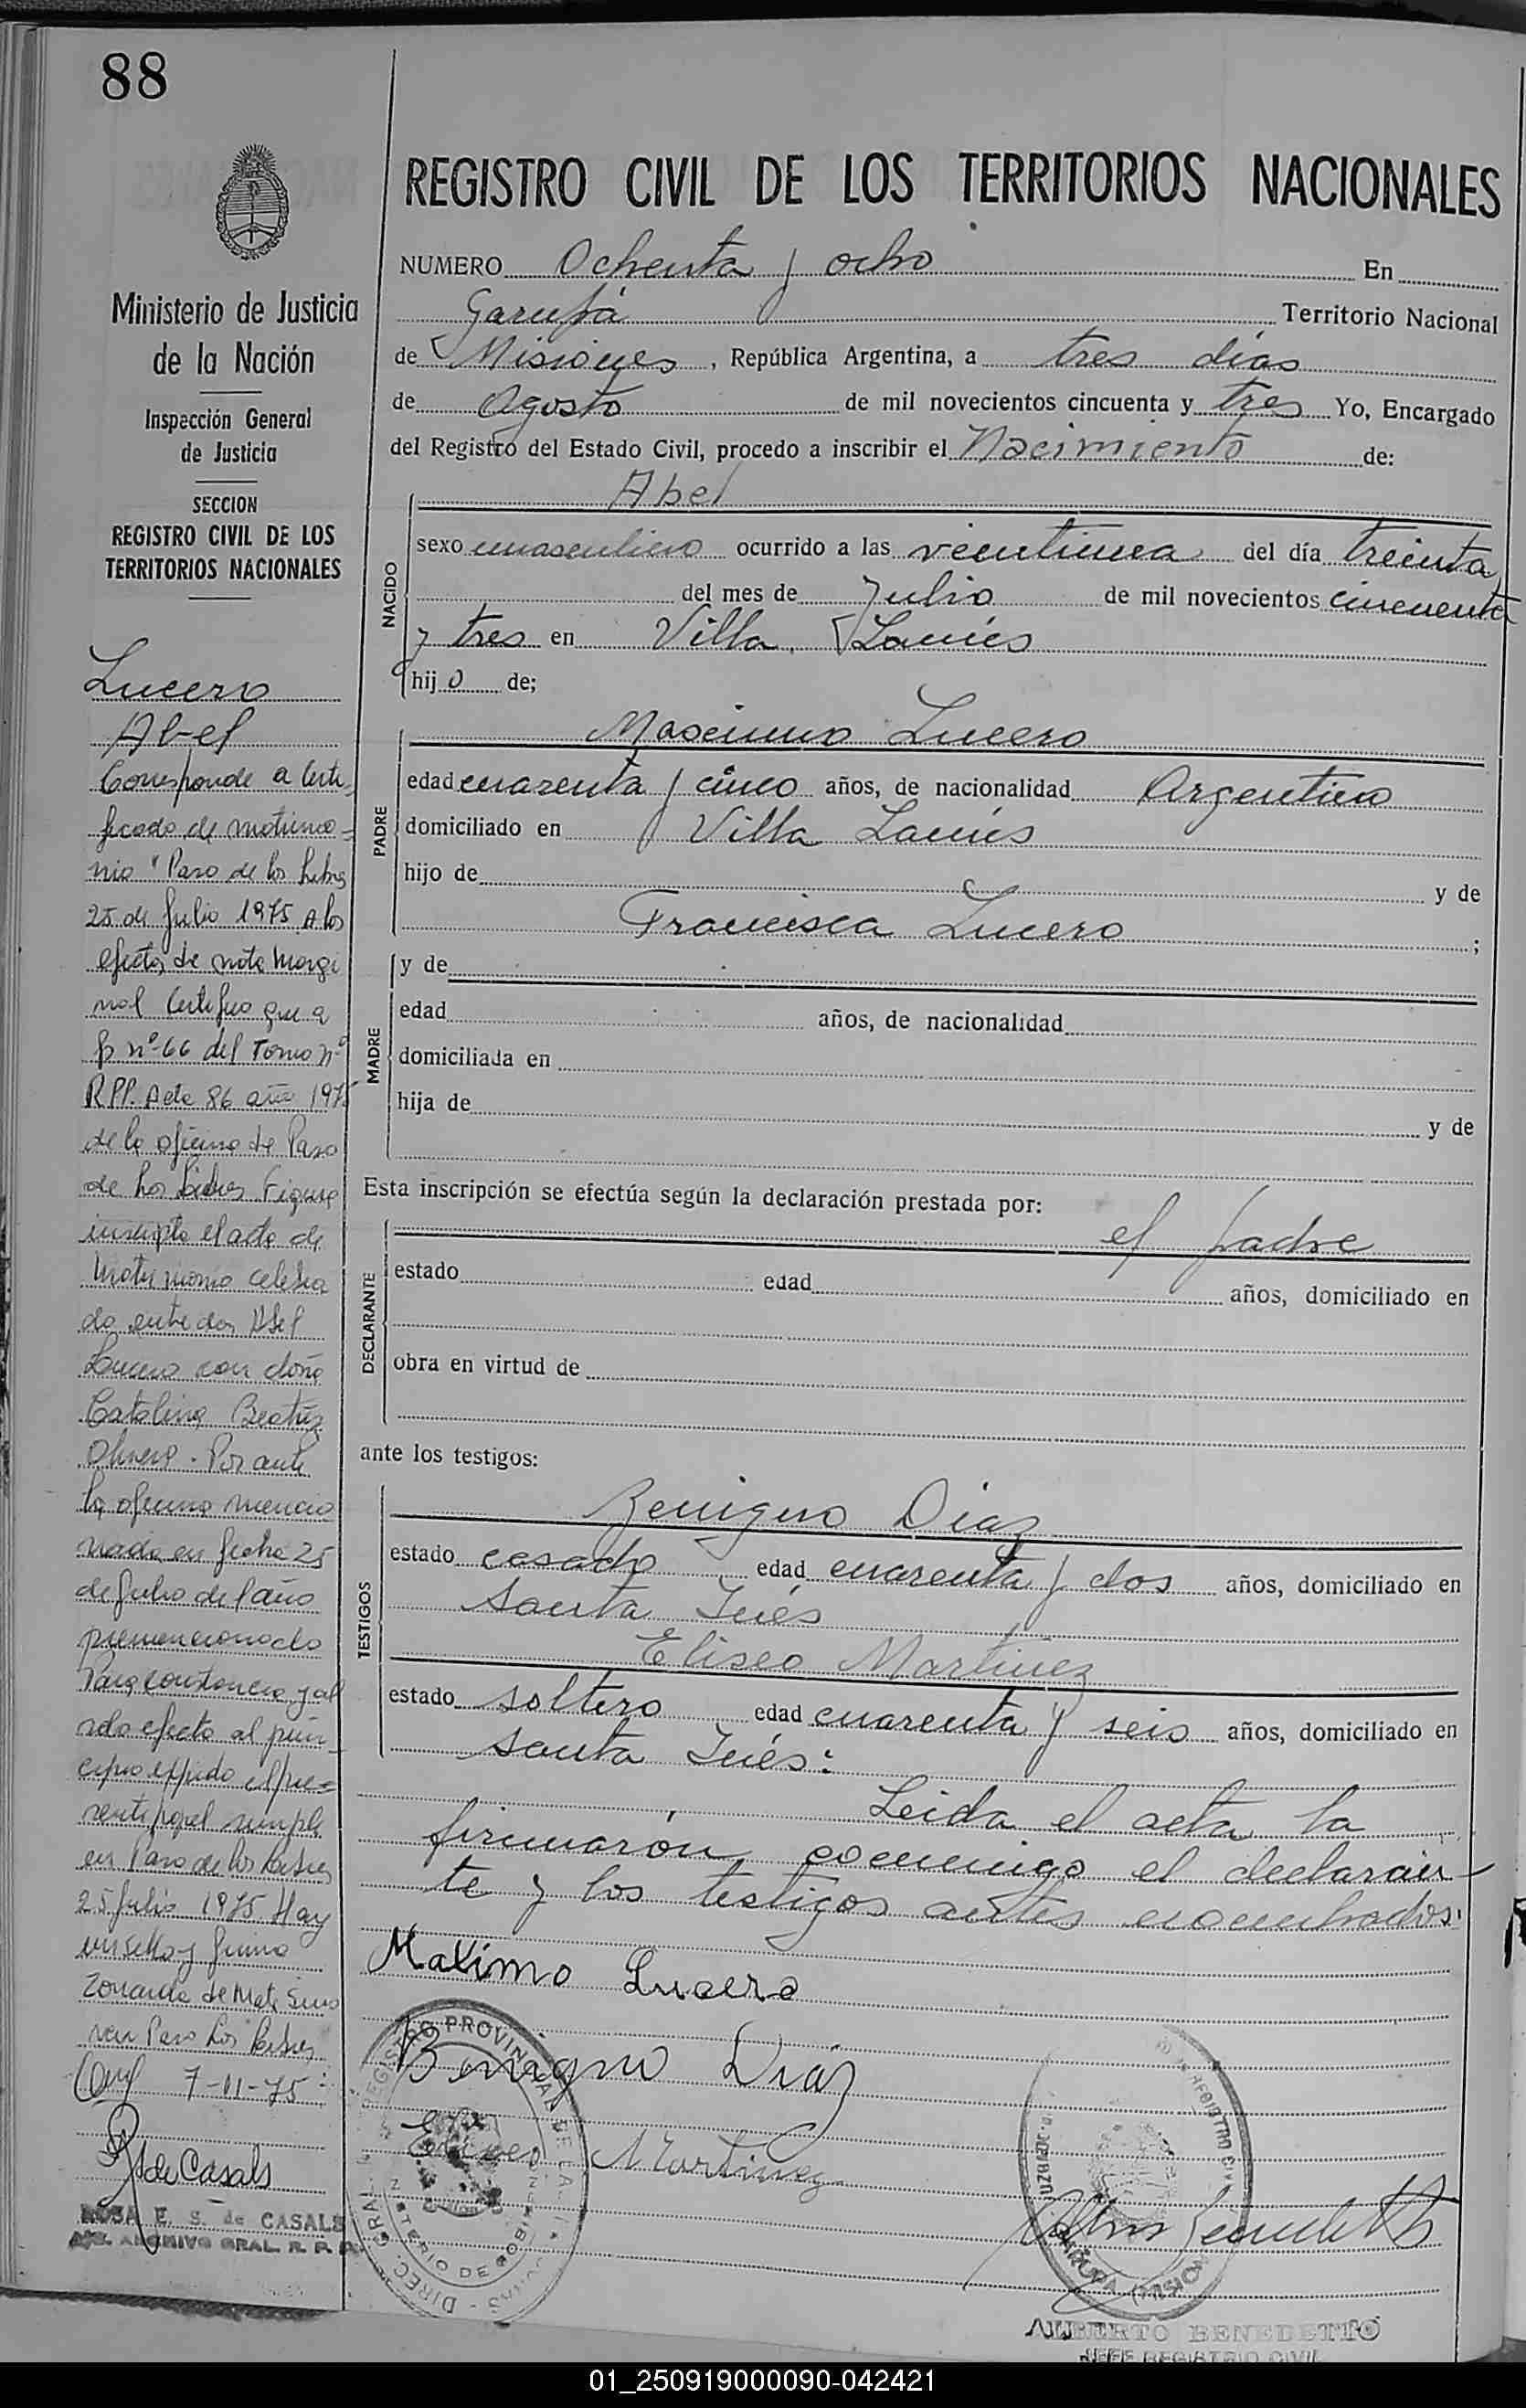 88
REGISTRO CIVIL DE LOS TERRITORIOS NACIONALES
NUMERO Ochenta y ocho En
Garupá Territorio Nacional
de Misiones, República Argentina, a tres días
de Agosto de mil novecientos cincuenta y tres Yo, Encargado
del Registro del Estado Civil, procedo a inscribir el Nacimiento de:
NACIDO
Abel
sexo masculino ocurrido a las veintiuna del día treinta
del mes de Julio de mil novecientos cincuenta
y tres en Villa Lanús
hijo de;
PADRE
Macsimo Lucero
edad cuarenta y cinco años, de nacionalidad Argentino
domiciliado en Villa Lanús
hijo de y de
Francisca Lucero ;
MADRE
y de
edad años, de nacionalidad
domiciliada en
hija de y de
Esta inscripción se efectúa según la declaración prestada por:
DECLARANTE
el padre
estado edad años, domiciliado en
obra en virtud de
ante los testigos:
TESTIGOS
Benigno Diaz
estado casado edad cuarenta y dos años, domiciliado en
Santa Inés
Eliseo Martinez
estado soltero edad cuarenta y seis años, domiciliado en
Santa Inés:
Leida el acta la
firmarón conmigo el declaran-
te y los testigos antes nombrados:
Maximo Lucero
Benigno Diaz
Eliseo Martinez
ALBERTO BENEDETTO
JEFE REGISTRO CIVIL
Ministerio de Justicia
de la Nación
Inspección General
de Justicia
SECCION
REGISTRO CIVIL DE LOS
TERRITORIOS NACIONALES
Lucero
Abel
Corresponde a Certi-
ficado de matrimo-
nio "Paso de los Libres
25 de Julio 1975 A los
efectos de nota Margi
nal Certifico que a
fs nº 66 del Tomo nº
RPP. Acta 86 año 1975
de la oficina de Paso
de Los Libres Figura
inscripto el acta de
Matrimonio celebra
do entre don Abel
Lucero con doña
Catalina Beatriz
Por ante
la oficina mencio
nada en fecha 25
de Julio del año
premencionado
Para constancia y al
solo efecto al prin-
cipio expido el pre-
sente papel simple
en Paso de los Libres
25 Julio 1975 Hay
un sello y firma
Paso Los Libres
7-11-75
R de Casals
ROSA E. S. de CASALS
ARCHIVO GRAL. R. P. P.
01_250919000090-042421